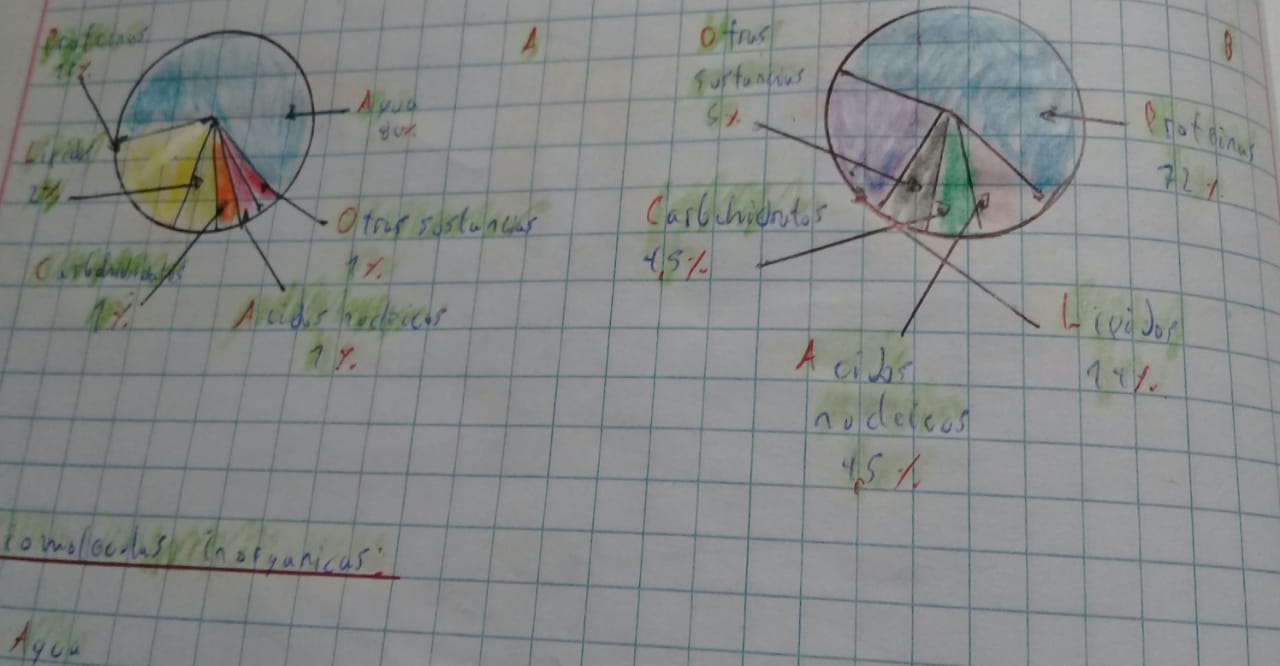 A
Proteinas
15%
Agua
80%
Lipidos
2%
Otras sustancias
1%
Carbohidratos
1%
Acidos nucleicos
1%
B
Otras
sustancias
5%
Proteinas
72%
Carbohidratos
4,5%
Lipidos
14%
Acidos
nucleicos
4,5%
iomoleculas inorganicas:
Agua